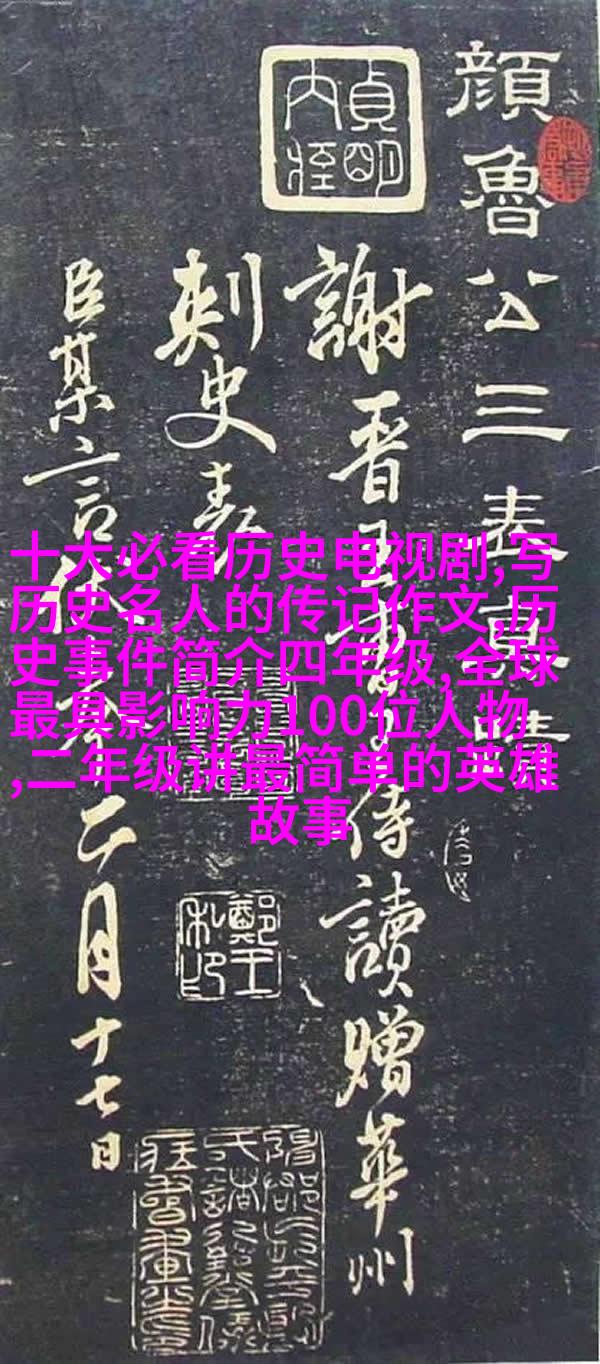 顏魯公三表真
謝晉王侍讀贈華州
刺史表
臣某言伏奉二月十七日
貞明
鄭王
十大必看历史电视剧,写
历史名人的传记作文,历
史事件简介四年级,全球
最具影响力100位人物
,二年级讲最简单的英雄
故事